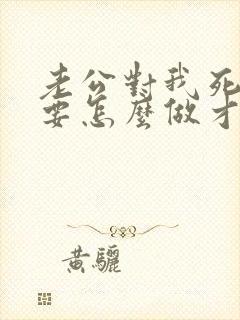 老公對我死
要怎麼做才
黃驪